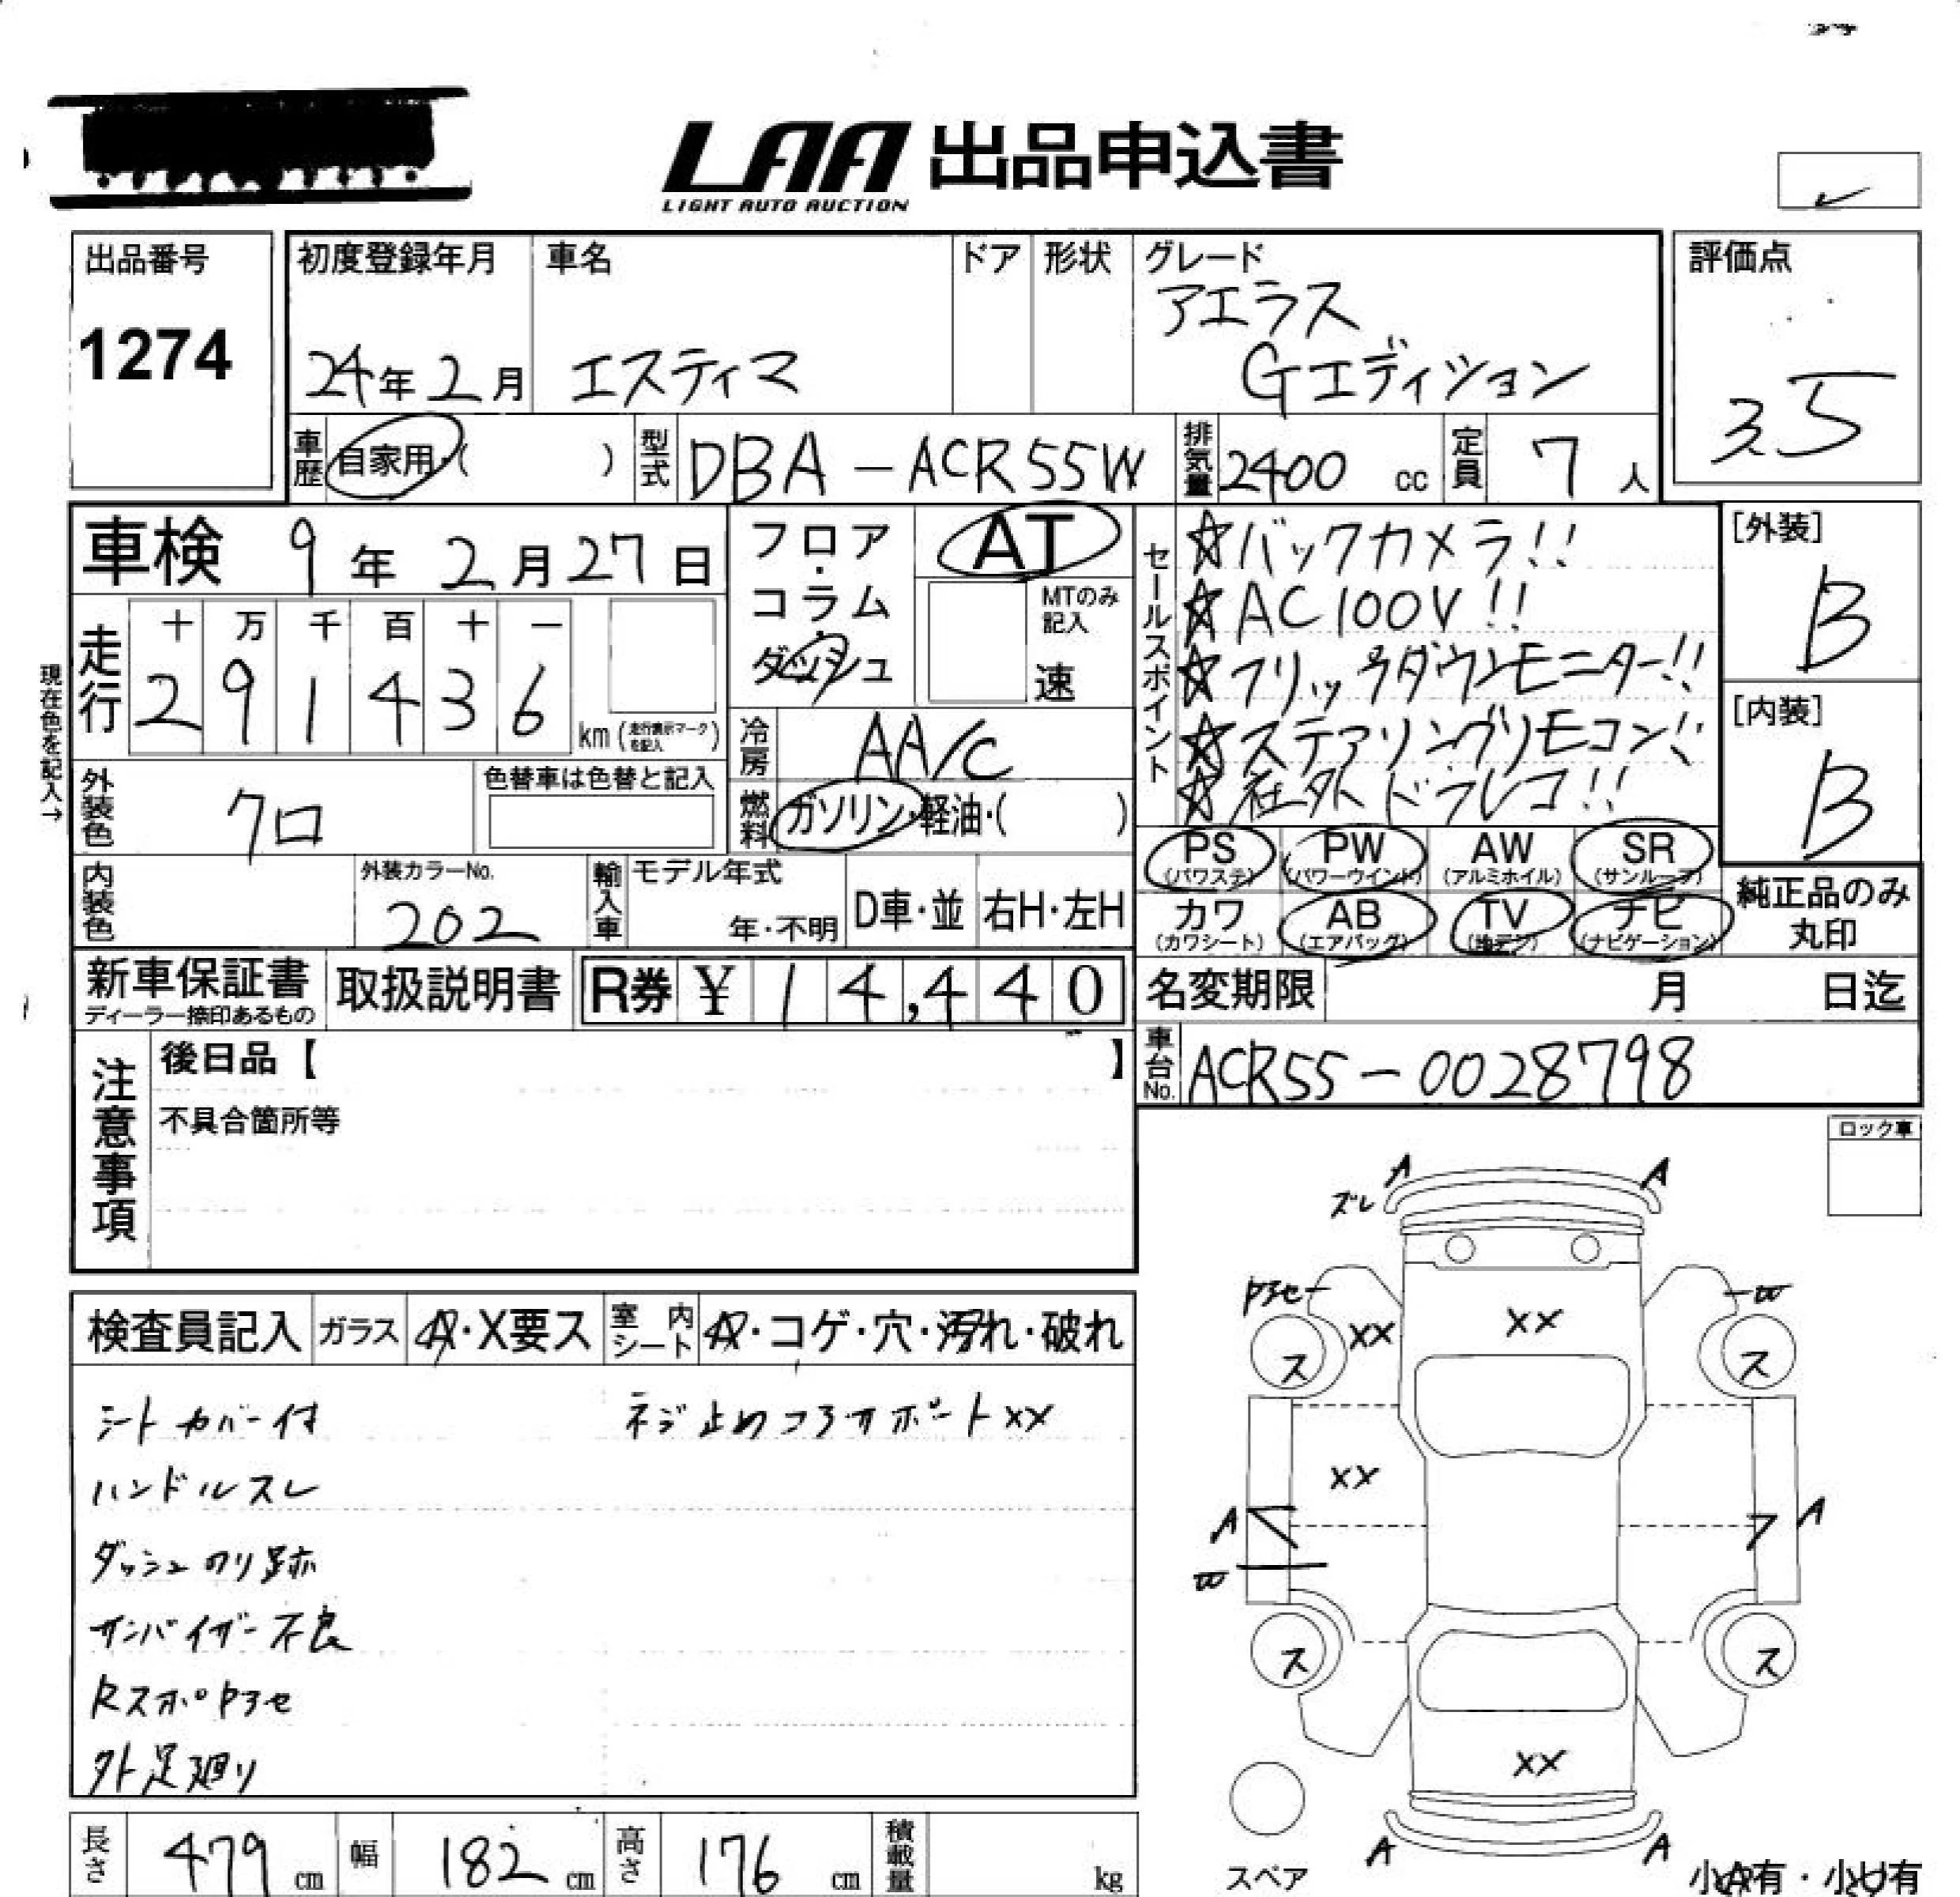 LAA 出品申込書
LIGHT AUTO AUCTION
出品番号
1274
初度登録年月
24年2月
車名
エスティマ
ドア
形状
グレード
アエラス
Gエディション
評価点
3.5
車歴
自家用・( )
型式
DBA-ACR55W
排気量
2400 cc
定員
7 人
車検 9年2月27日
フロア・コラム・ダッシュ
AT
MTのみ記入
速
セールスポイント
☆バックカメラ!!
☆AC100V!!
☆フリップダウンモニター!!
☆ステアリングリモコン!!
☆社外ドラレコ!!
[外装]
B
[内装]
B
現在色を記入→
走行
十 万 千 百 十 一
2 9 1 4 3 6 km
(走行表示マークを記入)
冷房
AA/C
燃料
ガソリン・軽油・( )
外装色
クロ
色替車は色替と記入
内装色
外装カラーNo.
202
輸入車
モデル年式
年・不明
D車・並
右H・左H
PS
(パワステ)
PW
(パワーウインド)
AW
(アルミホイル)
SR
(サンルーフ)
カワ
(カワシート)
AB
(エアバッグ)
TV
(地デジ)
ナビ
(ナビゲーション)
純正品のみ
丸印
新車保証書
ディーラー捺印あるもの
取扱説明書
R券 ¥ 14,440
名変期限 月 日迄
車台No.
ACR55-0028798
注意事項
後日品【 】
不具合箇所等
ロック車
検査員記入
ガラス
A・X要ス
室内シート
A・コゲ・穴・汚れ・破れ
シートカバー付
ネジ止めコアサポートXX
ハンドルスレ
ダッシュのり跡
サンバイザー不良
RスポPアセ
外足廻り
A
A
ズレ
Pアセ
XX
XX
ス
ス
XX
A
A
ス
ス
XX
A
A
スペア
小A有・小U有
長さ 479 cm
幅 182 cm
高さ 176 cm
積載量 kg